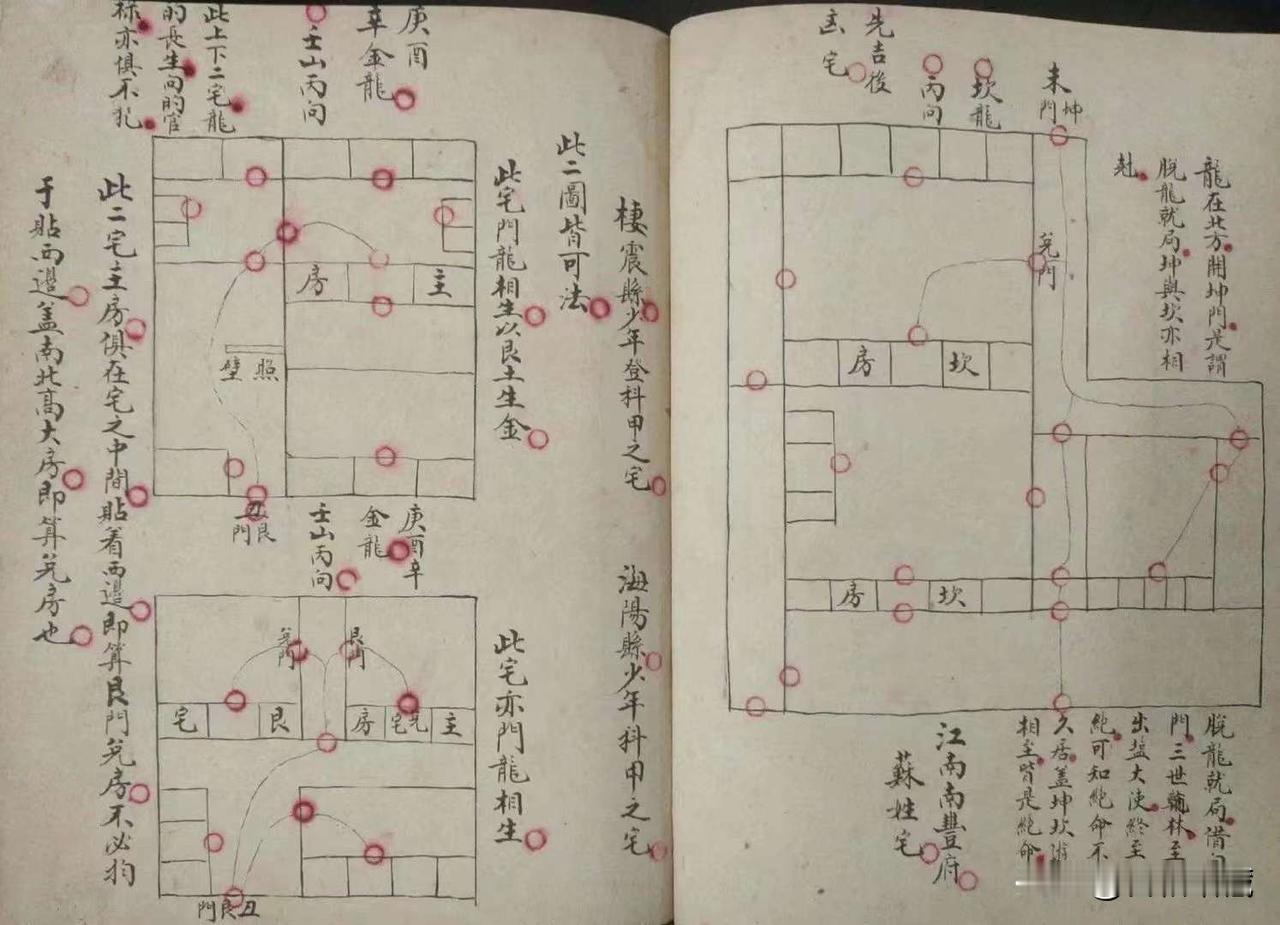 龍在北方開坤門是謂
脫龍就局坤與坎亦相
尅
未坤門
坎龍
丙向
先吉後
凶宅
兌門
房 坎
房 坎
脫龍就局
門三世翰林至
出塩大使終至
絶可知絶命不
久居蓋坤坎
相至皆是絶命
江南南豐府
蘇姓宅
棲震縣少年登科甲之宅
海陽縣少年科甲之宅
此二圖皆可法
此宅門龍相生以艮土生金
此宅亦門龍相生
庚酉
辛金龍
壬山丙向
此上下二宅龍
的長生向的官
祿亦俱不犯
房 主
照壁
丑艮門
庚酉辛
金龍
壬山丙向
兌門
艮門
宅 艮
房 宅兌 主
丑艮門
此二宅主房俱在宅之中間貼着西邊即算艮門兌房不必拘
于貼西邊盖南北高大房即算兌房也